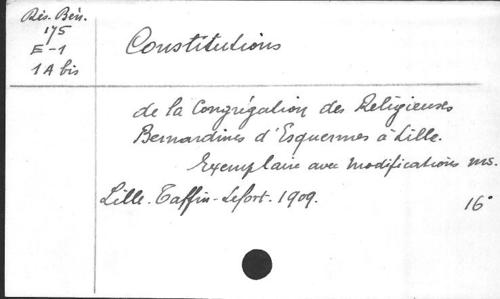 Rés. Bén.
175
E-1
1A bis
Constitutions
de la Congrégation des Religieuses
Bernardines d'Esquermes à Lille.
Exemplaire avec modifications ms.
Lille. Taffin-Lefort. 1909.
16°